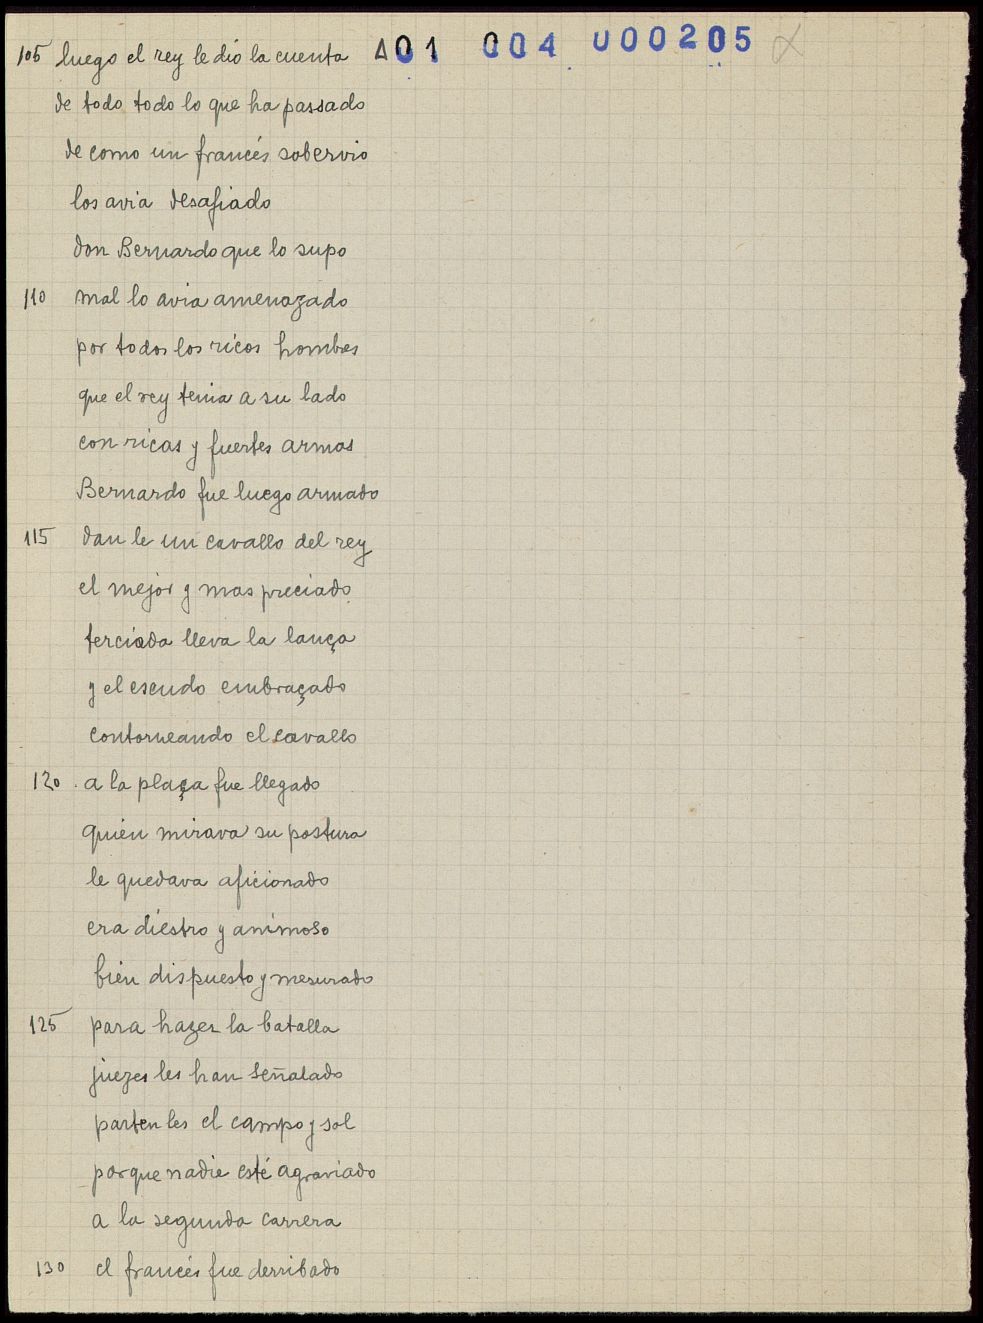 A01 004 000205
105 luego el rey le dió la cuenta
de todo todo lo que ha passado
de como un francés sobervio
los avia desafiado
don Bernardo que lo supo
110 mal lo avia amenazado
por todos los ricos hombres
que el rey tenia a su lado
con ricas y fuertes armas
Bernardo fue luego armado
115 dan le un cavallo del rey
el mejor y mas preciado
terciada lleva la lança
y el escudo embraçado
contorneando el cavallo
120 a la plaça fue llegado
quien mirava su postura
le quedava aficionado
era diestro y animoso
bien dispuesto y mesurado
125 para hazer la batalla
juezes les han señalado
parten les el campo y sol
porque nadie esté agraviado
a la segunda carrera
130 el francés fue derribado